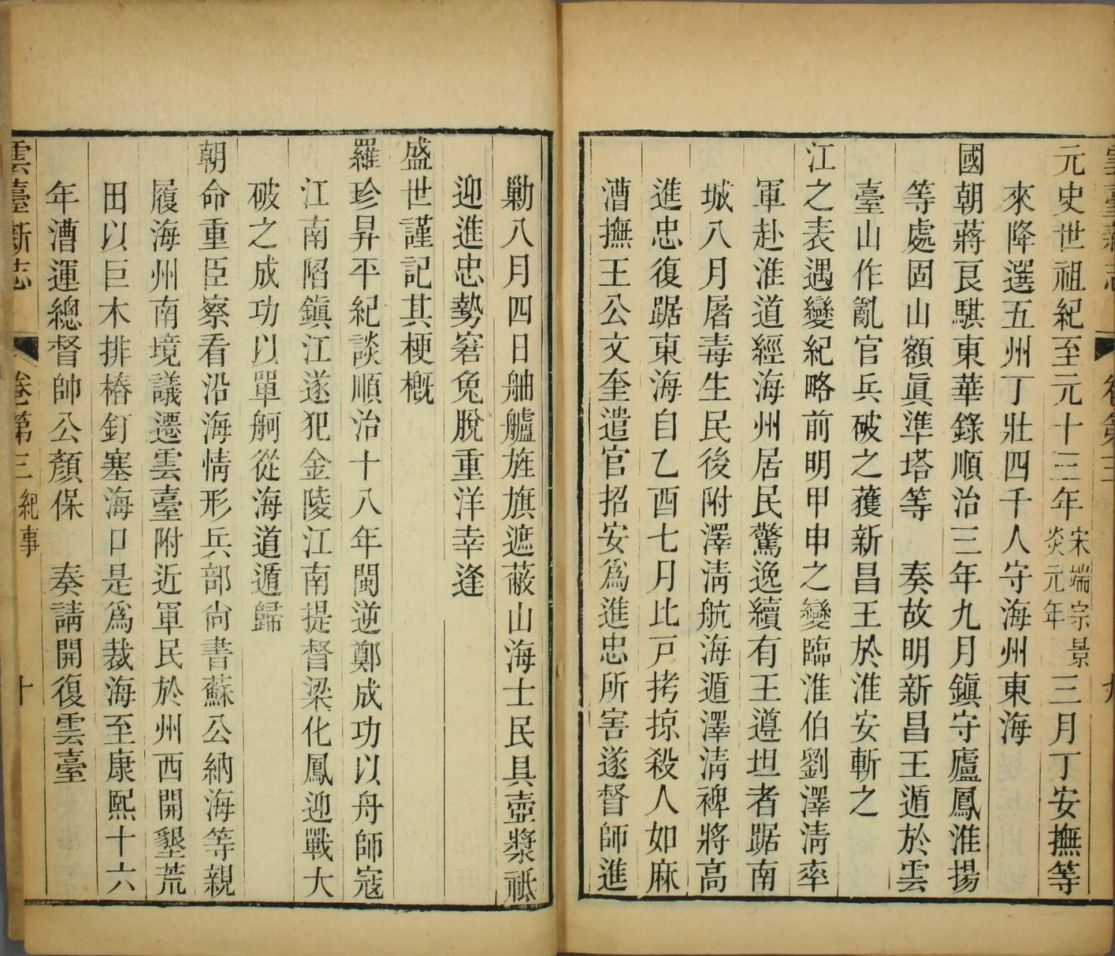 雲臺新志 卷第三 九
元史世祖紀至元十三年宋端宗景炎元年三月丁安撫等
來降選五州丁壯四千人守海州東海
國朝蔣良騏東華錄順治三年九月鎮守廬鳳淮揚
等處固山額眞準塔等 奏故明新昌王遁於雲
臺山作亂官兵破之獲新昌王於淮安斬之
江之表遇變紀略前明甲申之變臨淮伯劉澤淸率
軍赴淮道經海州居民驚逸續有王遵坦者踞南
城八月屠毒生民後附澤淸航海遁澤淸裨將高
進忠復踞東海自乙酉七月比戸拷掠殺人如麻
漕撫王公文奎遣官招安爲進忠所害遂督師進
勦八月四日舳艫旌旗遮蔽山海士民具壺漿祗
迎進忠勢窘兔脫重洋幸逢
盛世謹記其梗槪
羅珍昇平紀談順治十八年閩逆鄭成功以舟師寇
江南陷鎮江遂犯金陵江南提督梁化鳳迎戰大
破之成功以單舸從海道遁歸
朝命重臣察看沿海情形兵部尙書蘇公納海等親
履海州南境議遷雲臺附近軍民於州西開墾荒
田以巨木排樁釘塞海口是爲裁海至康熙十六
年漕運總督帥公顏保 奏請開復雲臺
雲臺新志 卷第三 紀事 十